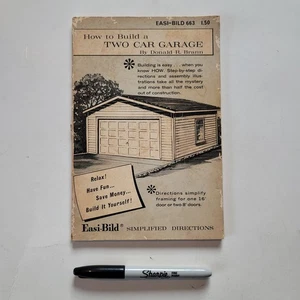 EASI-BILD 663 1.50
How to Build a
TWO CAR GARAGE
By Donald R. Brann
Building is easy . . . when you
know HOW. Step-by-step di-
rections and assembly illus-
trations take all the mystery
and more than half the cost
out of construction.
Relax!
Have Fun...
Save Money...
Build It Yourself!
Directions simplify
framing for one 16'
door or two 8' doors.
Easi-Bild® SIMPLIFIED DIRECTIONS
Sharpie